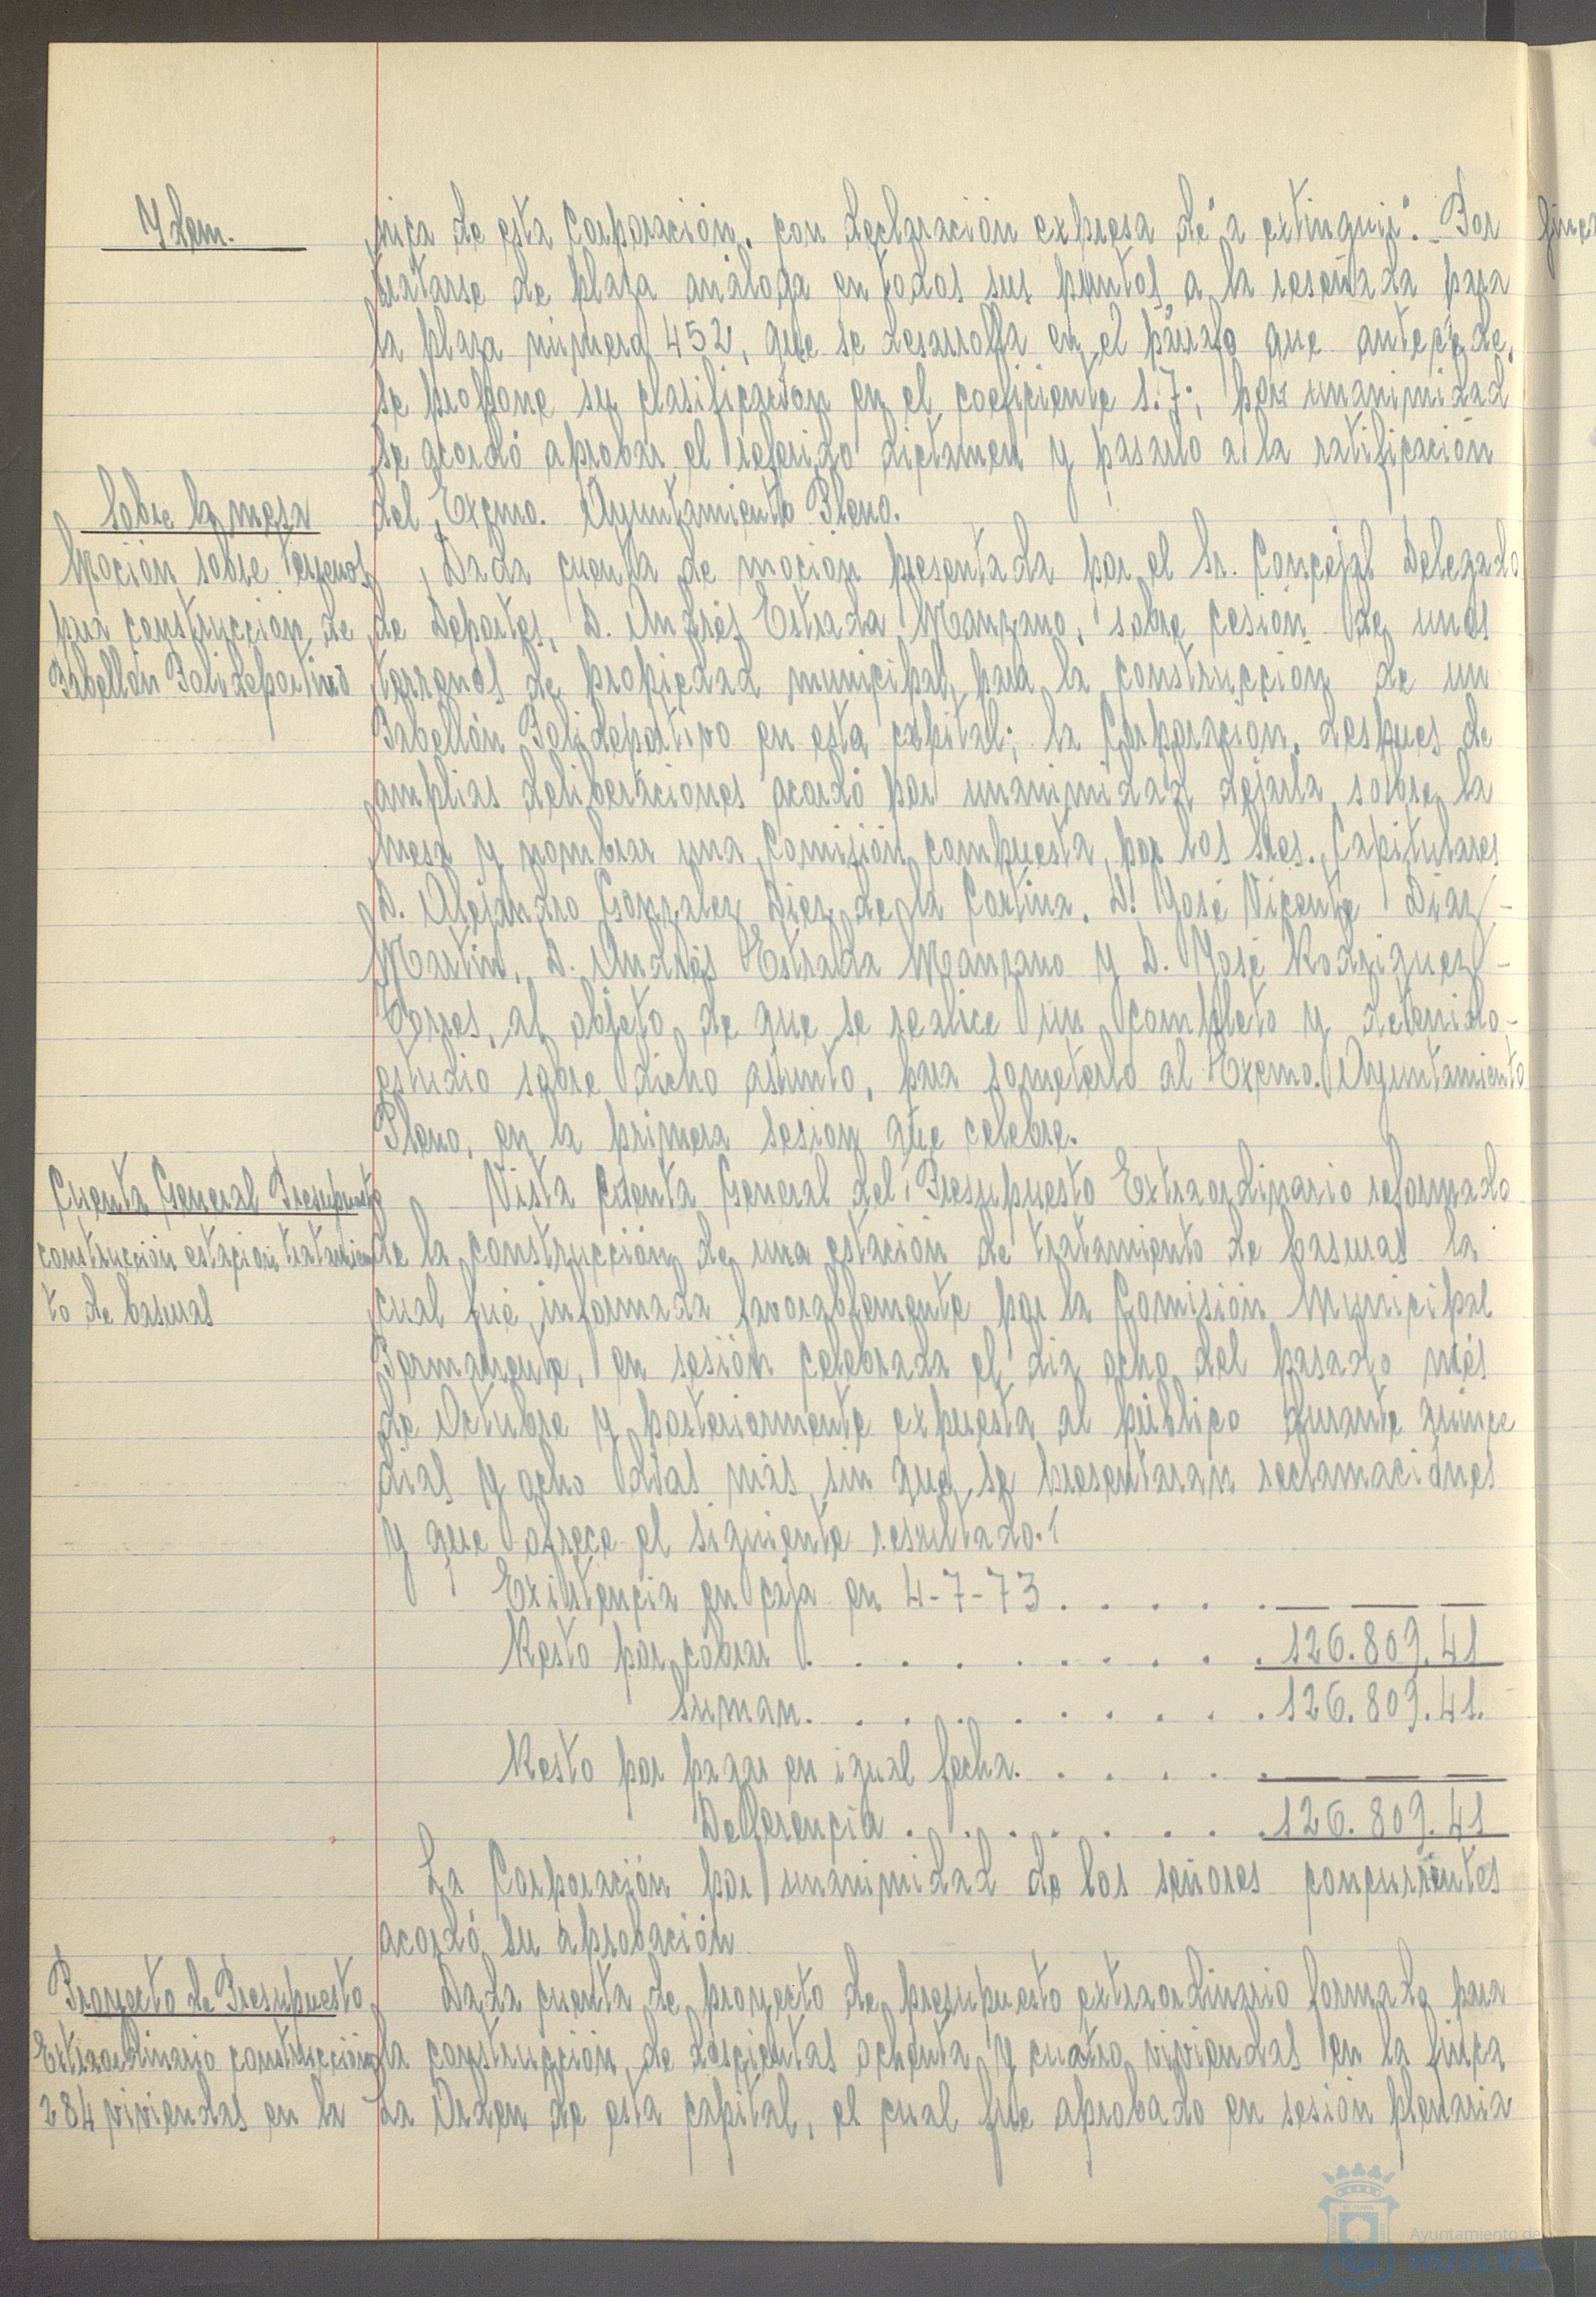 Ydem.
nica de esta Corporación, con declaración expresa de "a extinguir". Por
tratarse de plaza análoga en todos sus puntos a la reseñada para
la plaza número 452, que se desarrolla en el párrafo que antecede,
se propone su clasificación en el coeficiente 1.7; por unanimidad
se acordó aprobar el referido dictamen y pasarlo a la ratificación
del Excmo. Ayuntamiento Pleno.
Sobre la mesa
Moción sobre terrenos
para construcción de
Pabellón Polideportivo
Dada cuenta de moción presentada por el Sr. Concejal Delegado
de Deportes, D. Andrés Estrada Manzano, sobre cesión de unos
terrenos de propiedad municipal, para la construcción de un
Pabellón Polideportivo en esta capital; la Corporación, despues de
amplias deliberaciones acordó por unanimidad dejarla sobre la
mesa y nombrar una Comisión compuesta por los Sres. Capitulares
D. Alejandro Gonzalez Diez de la Cortina, D. José Vicente Diaz
Martin, D. Andrés Estrada Manzano y D. José Rodriguez
Torres, al objeto de que se realice un completo y detenido
estudio sobre dicho asunto, para someterlo al Excmo. Ayuntamiento
Pleno, en la primera sesion que celebre.
Cuenta General Presupuesto
construcción estación tratamien
to de basuras
Vista Cuenta General del Presupuesto Extraordinario reformado
de la construcción de una estación de tratamiento de basuras la
cual fué informada favorablemente por la Comisión Municipal
Permanente, en sesión celebrada el dia ocho del pasado més
de Octubre y posteriormente expuesta al público durante quince
dias y ocho dias más, sin que se presentaran reclamaciones
y que ofrece el siguiente resultado.
Existencia en caja en 4-7-73 . . . . . — — —
Resto por cobrar . . . . . . . . . 126.809.41
Suman. . . . . . . . . 126.809.41.
Resto por pagar en igual fecha. . . . . — — —
Deferencia . . . . . . . 126.809.41
La Corporación por unanimidad de los señores concurrentes
acordó su aprobación
Proyecto de Presupuesto
Extraordinario construcción
284 viviendas en la
Dada cuenta de proyecto de presupuesto extraordinario formado para
la construcción de doscientas ochenta y cuatro viviendas en la finca
La Orden de esta capital, el cual fue aprobado en sesión plenaria
Ayuntamiento de
HUELVA